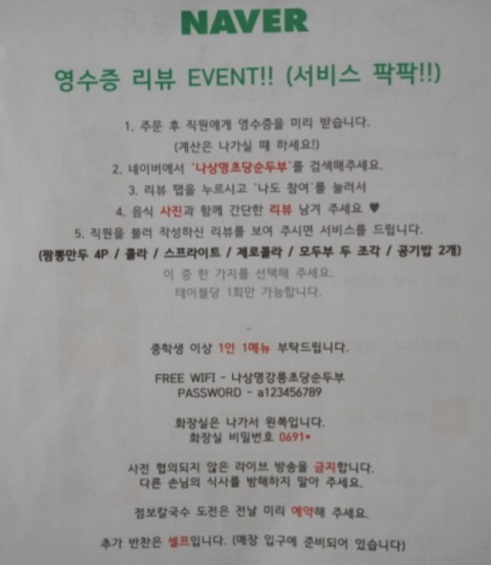 NAVER
영수증 리뷰 EVENT!! (서비스 팍팍!!)
1. 주문 후 직원에게 영수증을 미리 받습니다.
(계산은 나가실 때 하세요!)
2. 네이버에서 '나상명초당순두부'를 검색해주세요.
3. 리뷰 탭을 누르시고 '나도 참여'를 눌러서
4. 음식 사진과 함께 간단한 리뷰 남겨 주세요 ♥
5. 직원을 불러 작성하신 리뷰를 보여 주시면 서비스를 드립니다.
(짬뽕만두 4P / 콜라 / 스프라이트 / 제로콜라 / 모두부 두 조각 / 공기밥 2개)
이 중 한 가지를 선택해 주세요.
테이블당 1회만 가능합니다.
중학생 이상 1인 1메뉴 부탁드립니다.
FREE WIFI - 나상명강릉초당순두부
PASSWORD - a123456789
화장실은 나가서 왼쪽입니다.
화장실 비밀번호 0691*
사전 협의되지 않은 라이브 방송을 금지합니다.
다른 손님의 식사를 방해하지 말아 주세요.
점보칼국수 도전은 전날 미리 예약해 주세요.
추가 반찬은 셀프입니다. (매장 입구에 준비되어 있습니다)